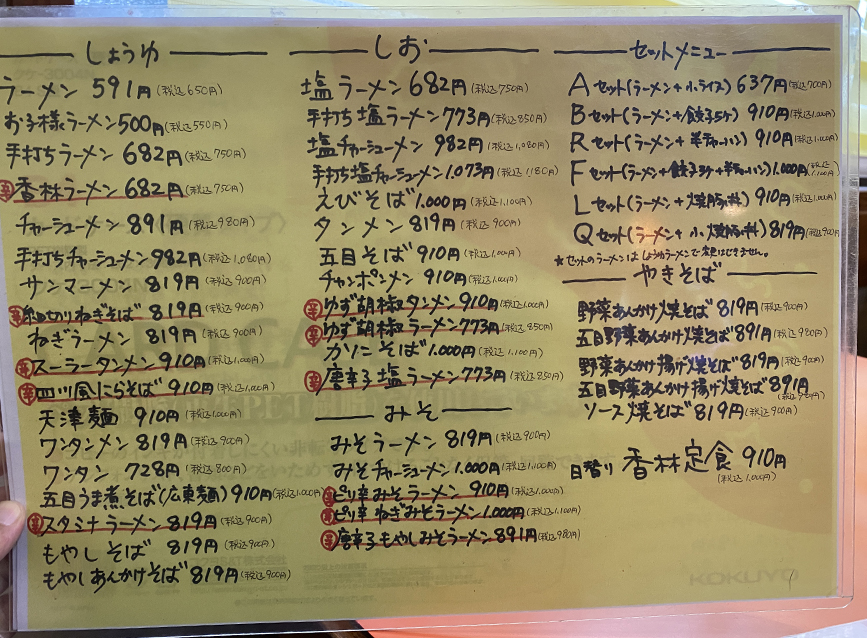 しょうゆ
ラーメン 591円(税込650円)
お子様ラーメン500円(税込550円)
手打ちラーメン 682円(税込750円)
辛 香林ラーメン 682円(税込750円)
チャーシューメン 891円(税込980円)
手打ちチャーシューメン 982円(税込1,080円)
サンマーメン 819円(税込900円)
辛 細切りねぎそば 819円(税込900円)
ねぎラーメン 819円(税込900円)
辛 スーラータンメン 910円(税込1,000円)
辛 四川風にらそば 910円(税込1,000円)
天津麺 910円(税込1,000円)
ワンタンメン 819円(税込900円)
ワンタン 728円(税込800円)
五目うま煮そば(広東麺)910円(税込1,000円)
辛 スタミナラーメン 819円(税込900円)
もやしそば 819円(税込900円)
もやしあんかけそば 819円(税込900円)
しお
塩ラーメン 682円(税込750円)
手打ち塩ラーメン 773円(税込850円)
塩チャーシューメン 982円(税込1,080円)
手打ち塩チャーシューメン 1.073円(税込1,180円)
えびそば 1.000円(税込1,100円)
タンメン 819円(税込900円)
五目そば 910円(税込1,000円)
チャンポンメン 910円(税込1,000円)
辛 ゆず胡椒タンメン 910円(税込1,000円)
辛 ゆず胡椒ラーメン 773円(税込850円)
カソニそば 1.000円(税込1,100円)
辛 唐辛子塩ラーメン 773円(税込850円)
みそ
みそラーメン 819円(税込900円)
みそチャーシューメン 1.000円(税込1,100円)
辛 ピリ辛みそラーメン 910円(税込1,000円)
辛 ピリ辛ねぎみそラーメン 1.000円(税込1,100円)
辛 唐辛子もやしみそラーメン 891円(税込980円)
セットメニュー
Aセット(ラーメン+小ライス)637円(税込700円)
Bセット(ラーメン+餃子5ケ)910円(税込1,000円)
Rセット(ラーメン+半チャーハン)910円(税込1,000円)
Fセット(ラーメン+餃子3ケ+半チャーハン)1.000円(税込1,100円)
Lセット(ラーメン+焼豚丼)910円(税込1,000円)
Qセット(ラーメン+小焼豚丼)819円(税込900円)
*セットのラーメンはしょうゆラーメンで変更はできません。
やきそば
野菜あんかけ焼そば 819円(税込900円)
五目野菜あんかけ焼そば 891円(税込980円)
野菜あんかけ揚げ焼そば 819円(税込900円)
五目野菜あんかけ揚げ焼そば 891円(税込980円)
ソース焼そば 819円(税込900円)
日替り 香林定食 910円
(税込1,000円)
KOKUYO